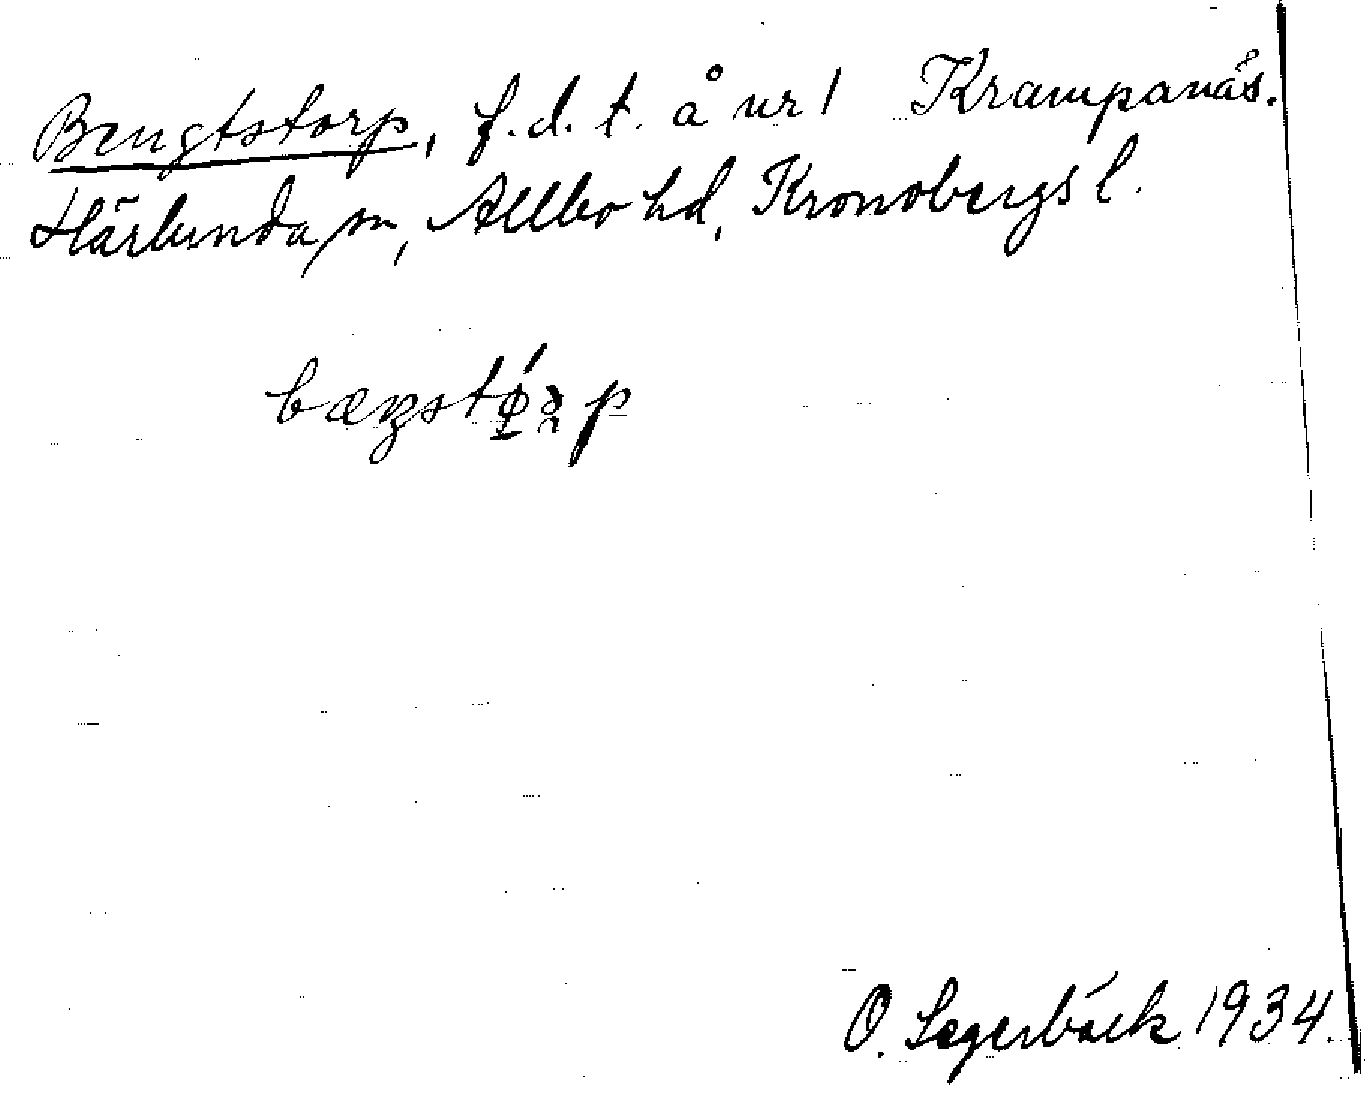 Bengtstorp, f.d. t. å nr 1 Krampanäs.
Härlunda sn, Allbo hd, Kronobergs l.
O. Sagerbäck 1934.